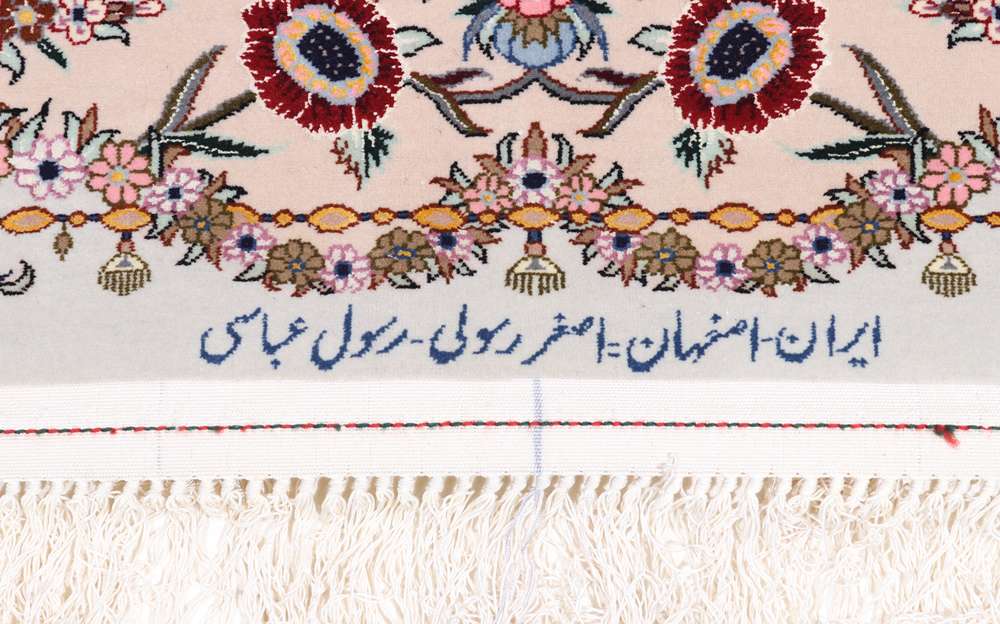 ایران-اصفهان=اصغر رسولی-رسول عباسی